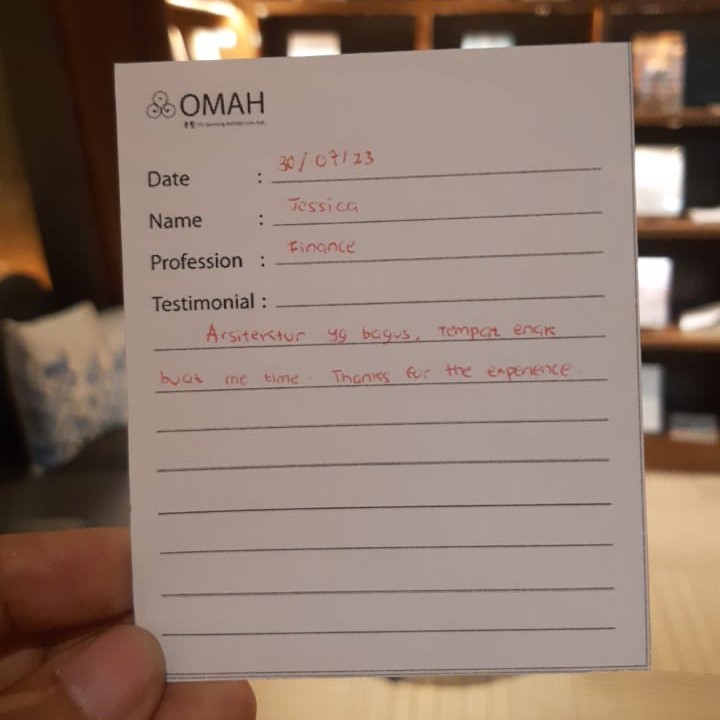 OMAH
Date : 30/07/23
Name : Jessica
Profession : Finance
Testimonial :
Arsitektur yg bagus, tempat enak
buat me time. Thanks for the experience.